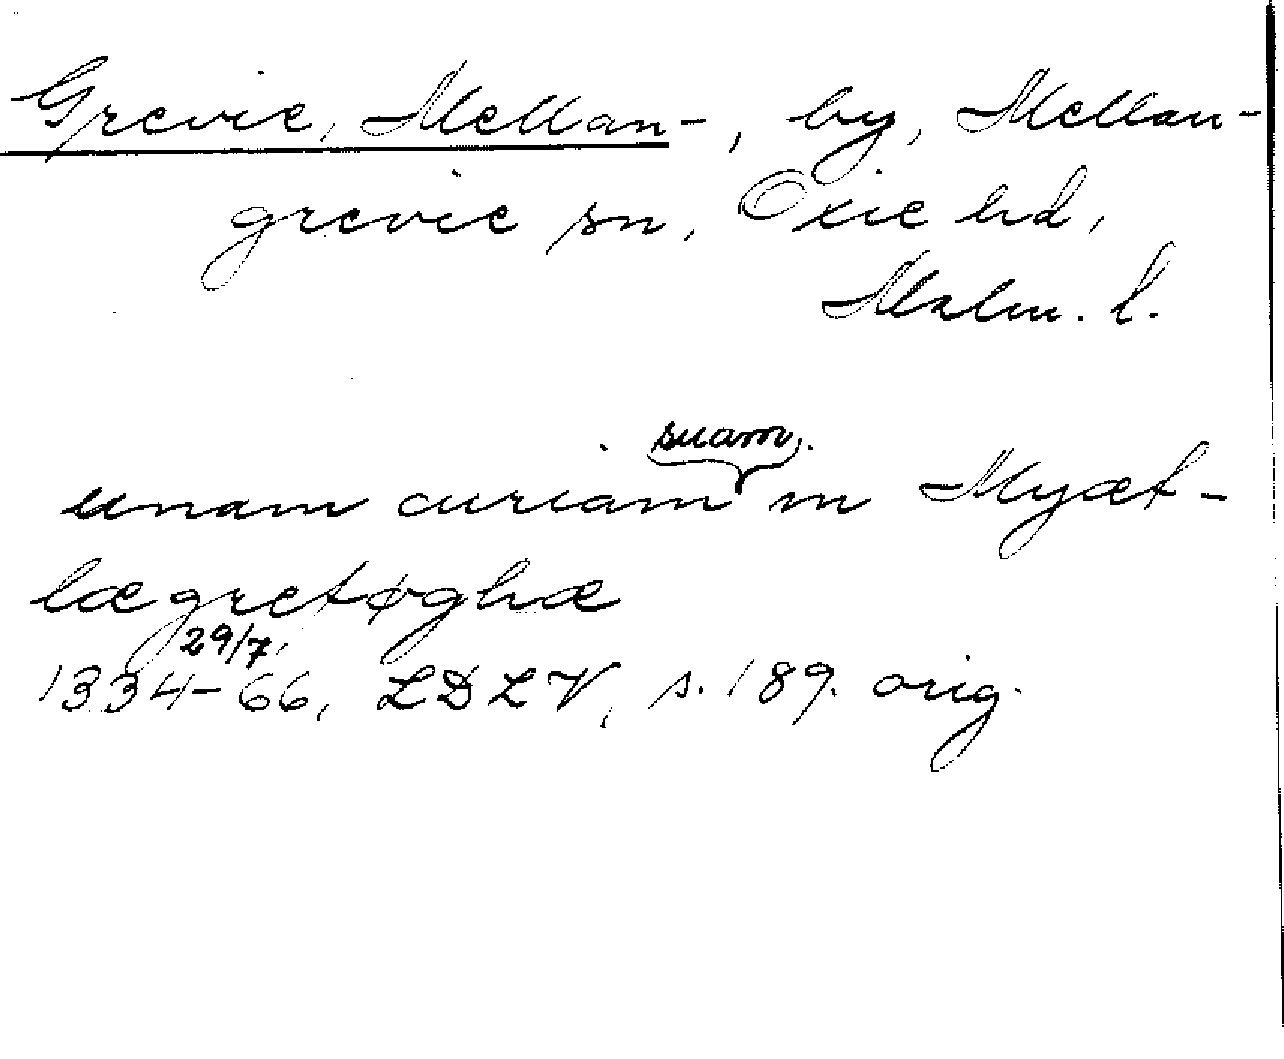 Grevie, Mellan-, by, Mellan-
grevie sn, Oxie hd,
Malm. l.
suam
unam curiam in Myæt-
lægretøghæ
29/7
1334-66, LDLV, s. 189. orig.